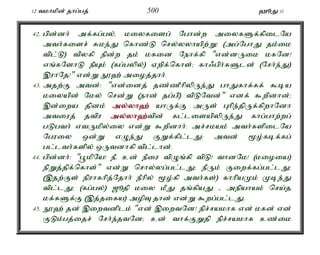 12 வமாமின் தாப்பத் 500 ஹூது 11
42. பின்னர் அக்கப்பல், மலைகளைப் போன்ற அலைகளுக்கிடையே
அவர்களைச் சுமந்து கொண்டு செல்லலாயிற்று; (அப்போது தம்மை
விட்டு) விலகி நின்ற தம் மகனை நோக்கி "என்னருமை மகனே!
எங்களோடு நீயும் (கப்பலில்) ஏறிக்கொள்; காஃபிர்களுடன் (சேர்ந்து)
இராதே!" என்று நூஹ் அழைத்தார்.
43. அதற்கு அவன்: "என்னைத் தண்ணீரிலிருந்து பாதுகாக்கக் கூடிய
மலையின் மேல் சென்று (நான் தப்பி) விடுவேன்" எனக் கூறினான்;
இன்றைய தினம் அல்லாஹ் யாருக்கு அருள் புரிந்திருக்கிறானோ
அவரைத் தவிர அல்லாஹ்வின் கட்டளையிலிருந்து காப்பாற்றப்
படுபவர் எவருமில்லை என்று கூறினார். அச்சமயம் அவர்களிடையே
பேரலை ஒன்று எழுந்து குறுக்கிட்டது; அவன் மூழ்கடிக்கப்
பட்டவர்களில் ஒருவனாகி விட்டான்.
44. பின்னர்: "பூமியே! நீ உன் நீரை விழுங்கி விடு! வானமே! (மழையை)
நிறுத்திக்கொள்!" என்று சொல்லப்பட்டது; நீரும் குறைக்கப்பட்டது;
(இதற்குள் நிராகரித்தோர் நீரில் மூழ்கி அவர்கள்) காரியமும் முடிந்து
விட்டது; (கப்பல்) ஜூதி மலை மீது தங்கியது - அநியாயம் செய்த
மக்களுக்கு (இத்தகைய) அழிவு தான் என்று கூறப்பட்டது.
45. நூஹ் தன் இறைவனிடம் "என் இறைவனே! நிச்சயமாக என் மகன் என்
குடும்பத்தைச் சேர்ந்தவனே; உன் வாக்குறுதி நிச்சயமாக உண்மை